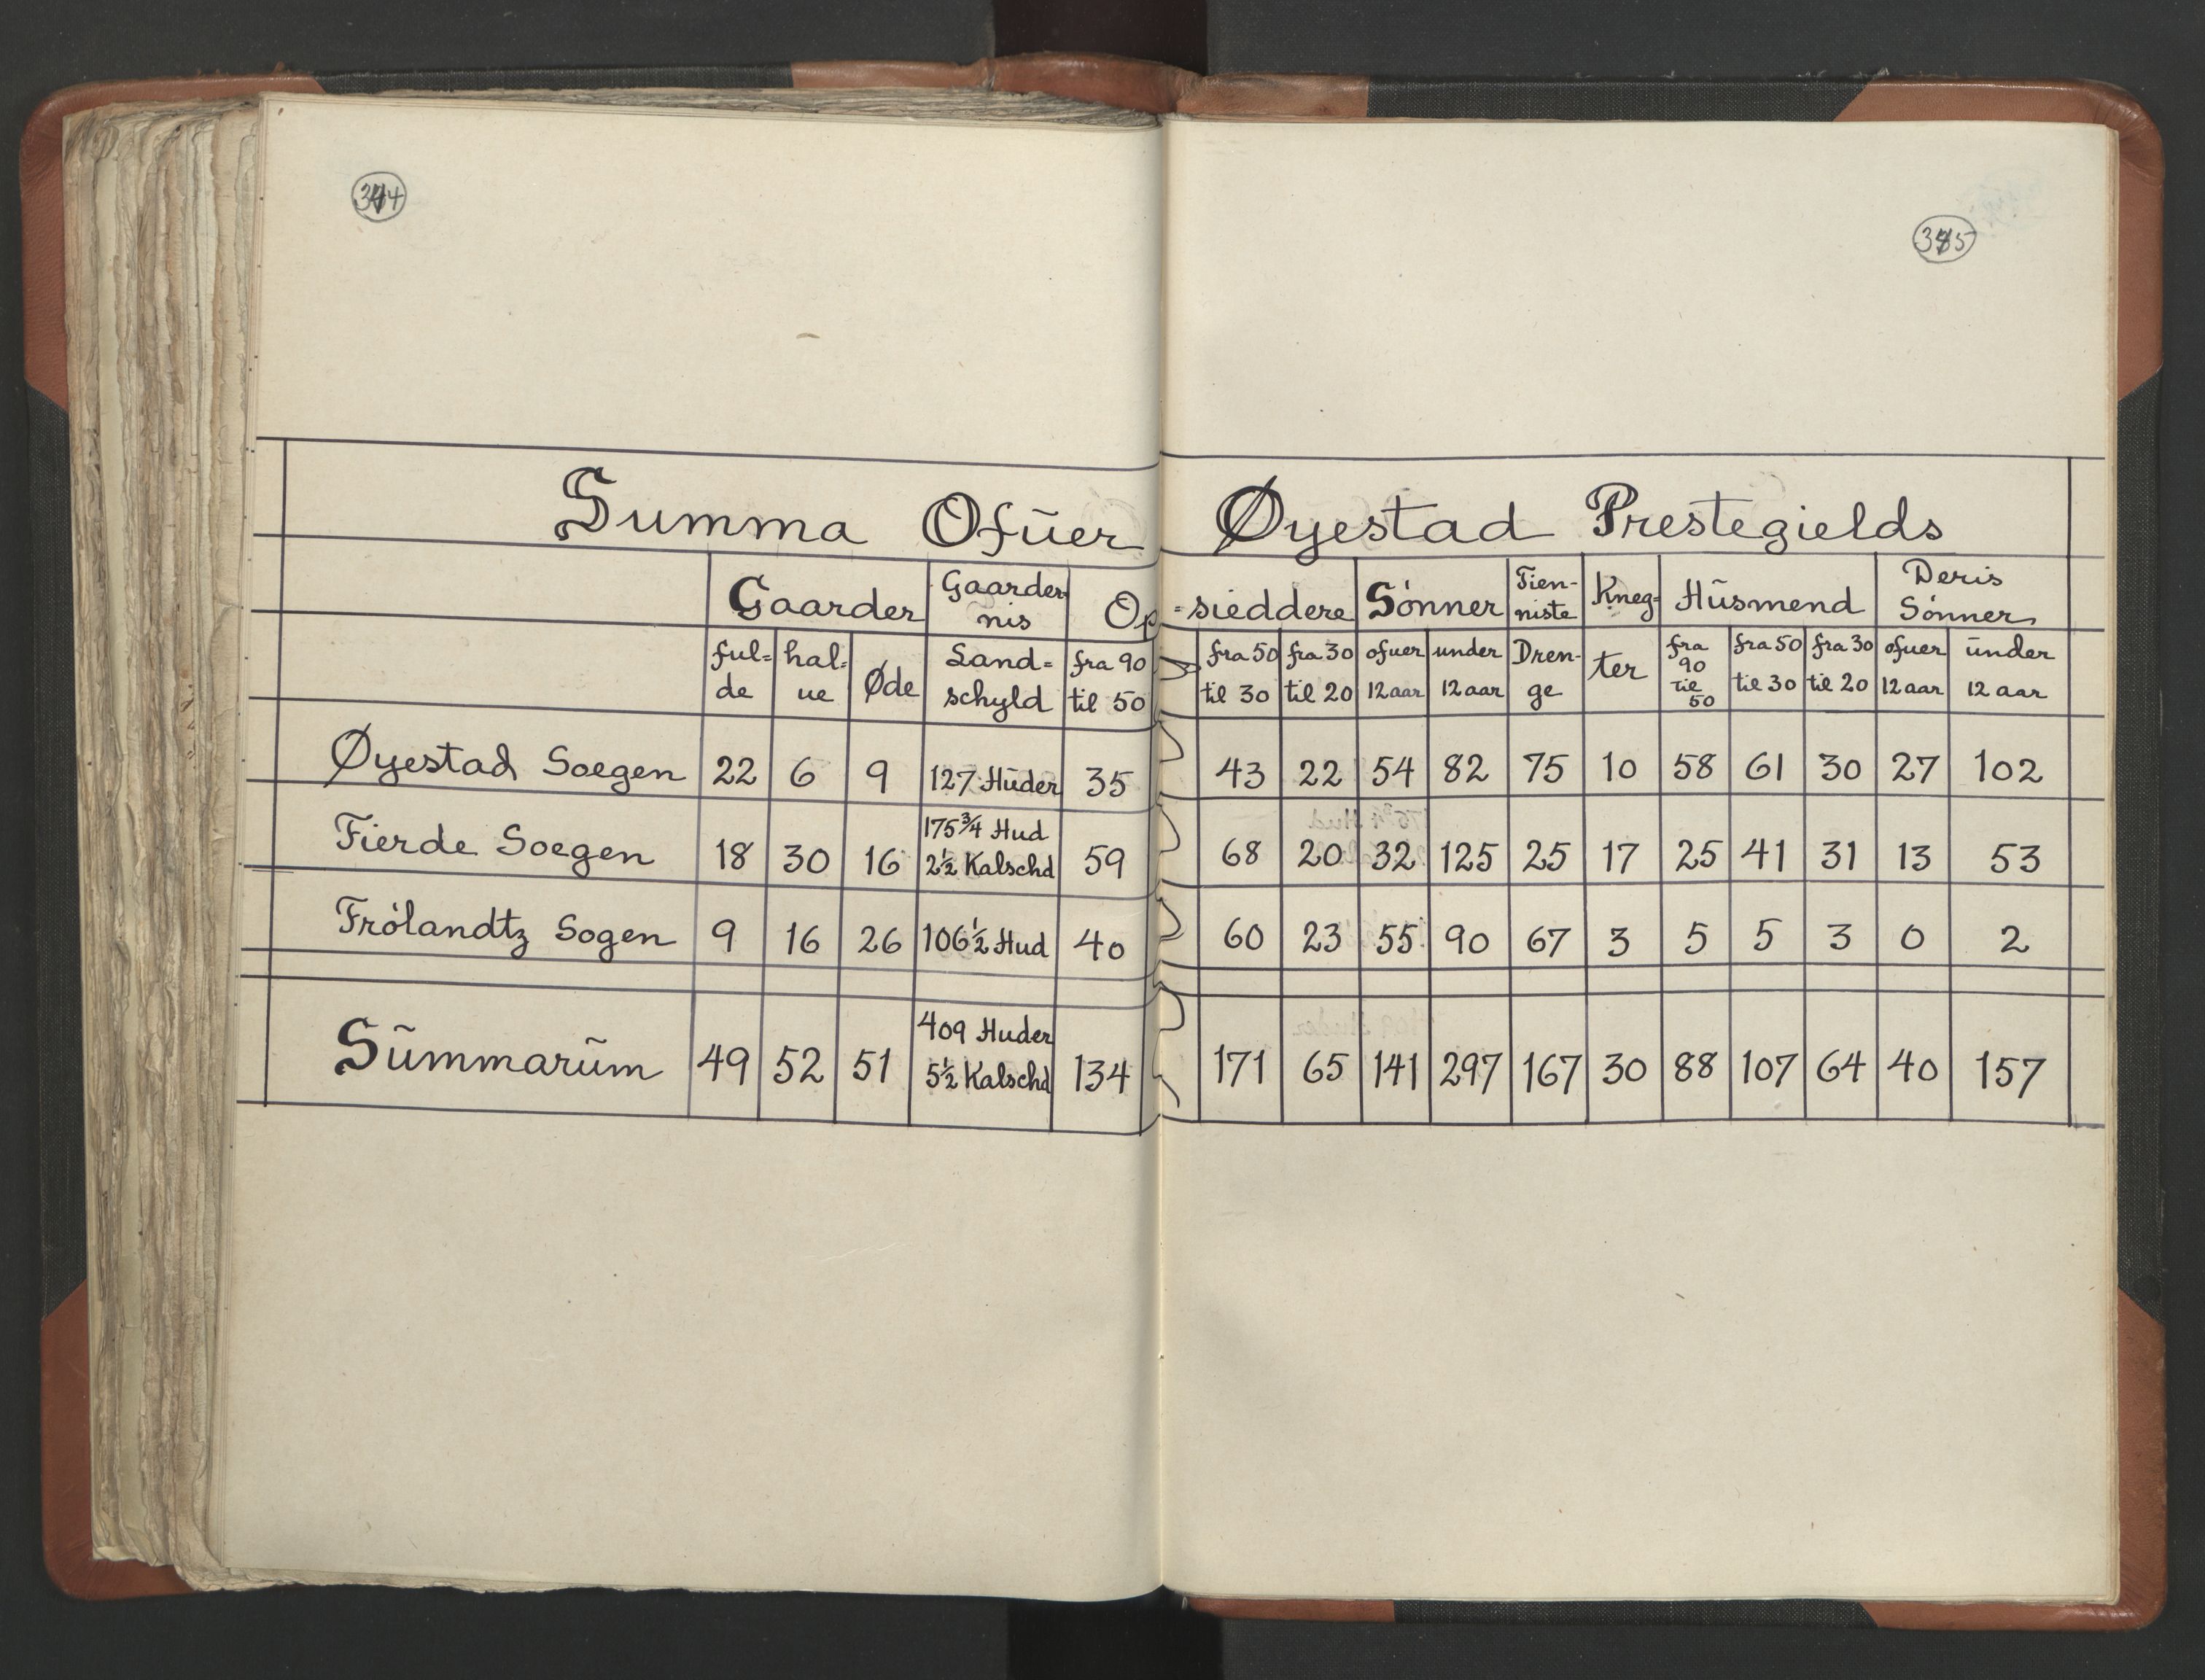 344
345
Summa Ofüer Øyestad Prestegields
Gaarder Gaarder- Op =sieddere Sönner Tien- Kneg= Hüsmend Deris
nis niste Sönner
ful= hal= Øde Land= fra 90 fra 50 fra 30 ofuer under Dren- ter fra fra 50 fra 30 ofuer ünder
de ue schyld til 50 til 30 til 20 12 aar 12 aar ge 90 til 30 til 20 12 aar 12 aar
til
50
Øyestad Soegen 22 6 9 127 Hüder 35 43 22 54 82 75 10 58 61 30 27 102
175 3/4 Hud
Fierde Soegen 18 30 16 2½ Kalschd 59 68 20 32 125 25 17 25 41 31 13 53
Frölandtz Sogen 9 16 26 106½ Hud 40 60 23 55 90 67 3 5 5 3 0 2
409 Huder
Sümmarüm 49 52 51 5½ Kalschd 134 171 65 141 297 167 30 88 107 64 40 157